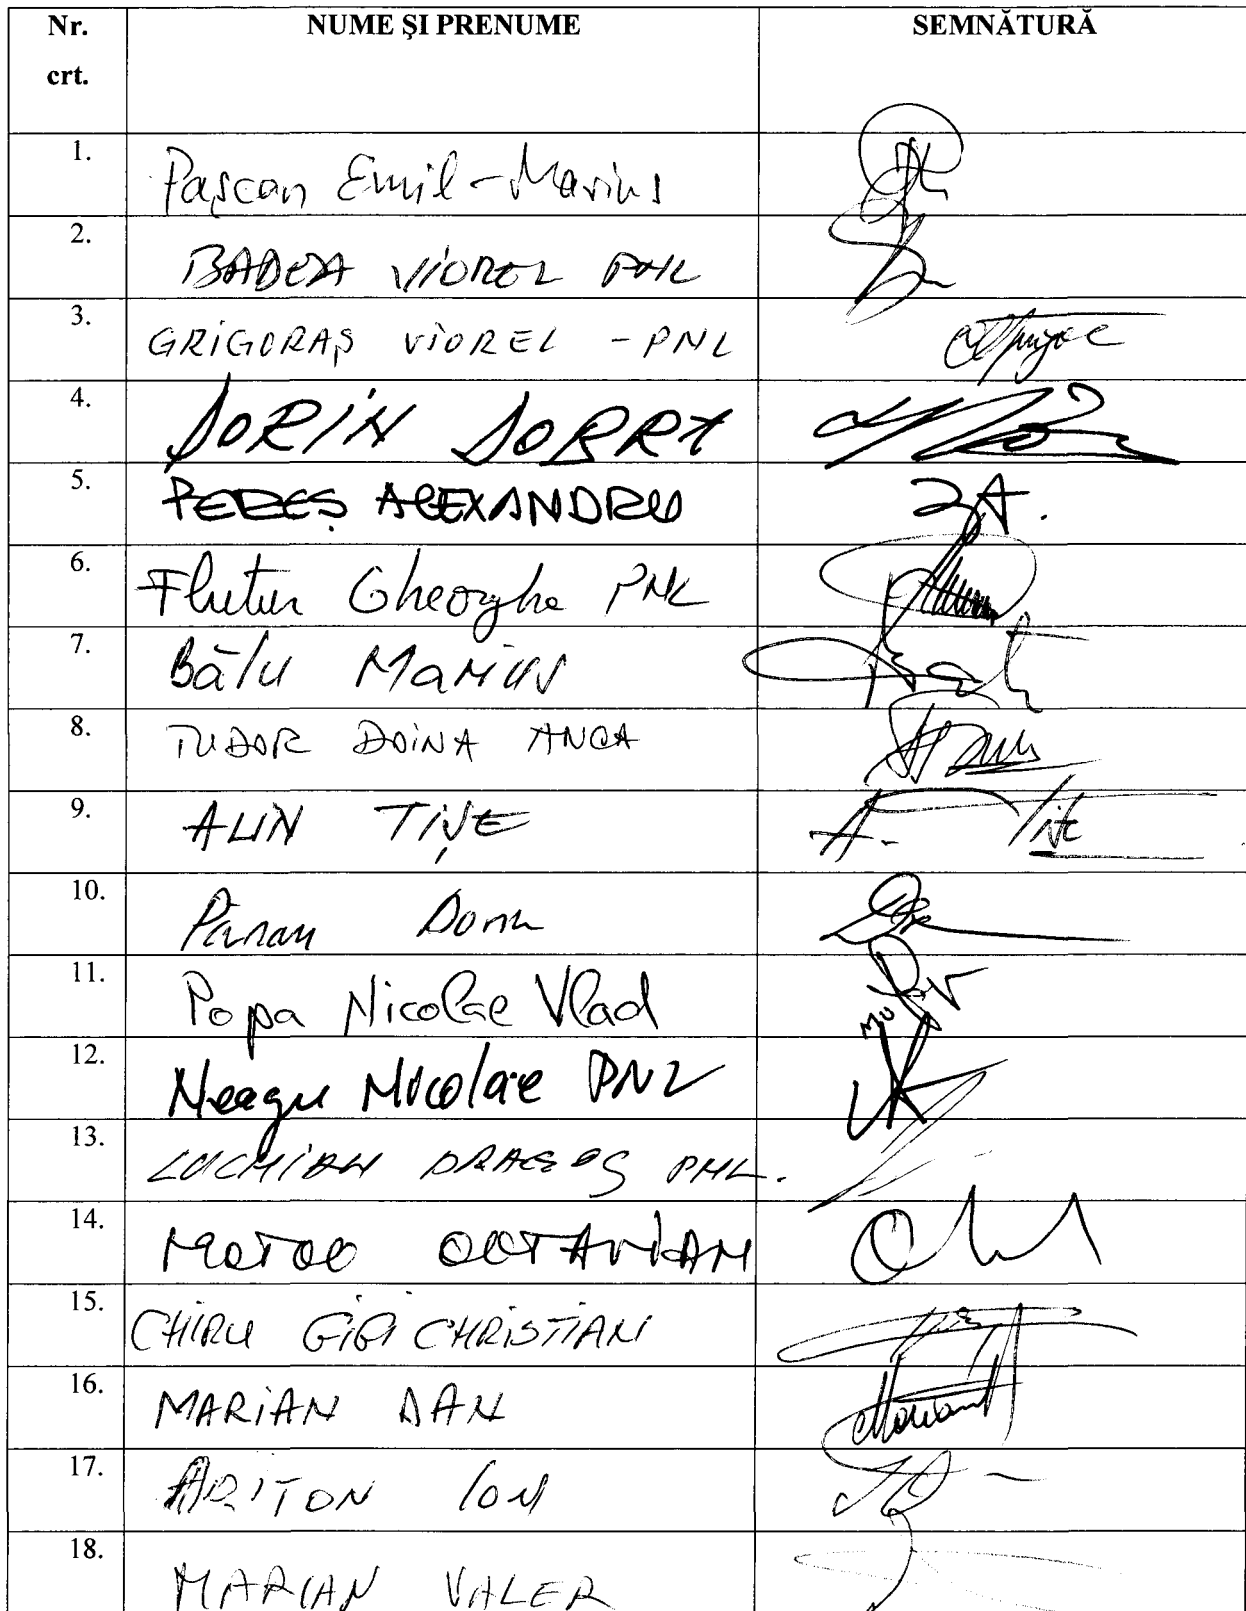 Nr. crt. NUME ŞI PRENUME SEMNĂTURĂ
1. Paşcan Emil-Marius
2. BADEA VIOREL PNL
3. GRIGORAŞ VIOREL - PNL
4. DORIN DOBRA
5. PEREŞ ALEXANDRU
6. Flutur Gheorghe PNL
7. Bâlu Marius
8. TUDOR DOINA ANCA
9. ALIN TIŞE A. Tişe
10. Păran Dorin
11. Popa Nicolae Vlad
12. Neagu Nicolae PNL
13. LUCHIAN DRAGOŞ PNL.
14. MOTOC OCTAVIAN
15. CHIRU GIGI CHRISTIAN
16. MARIAN DAN
17. ARITON ION
18. MARIAN VALER